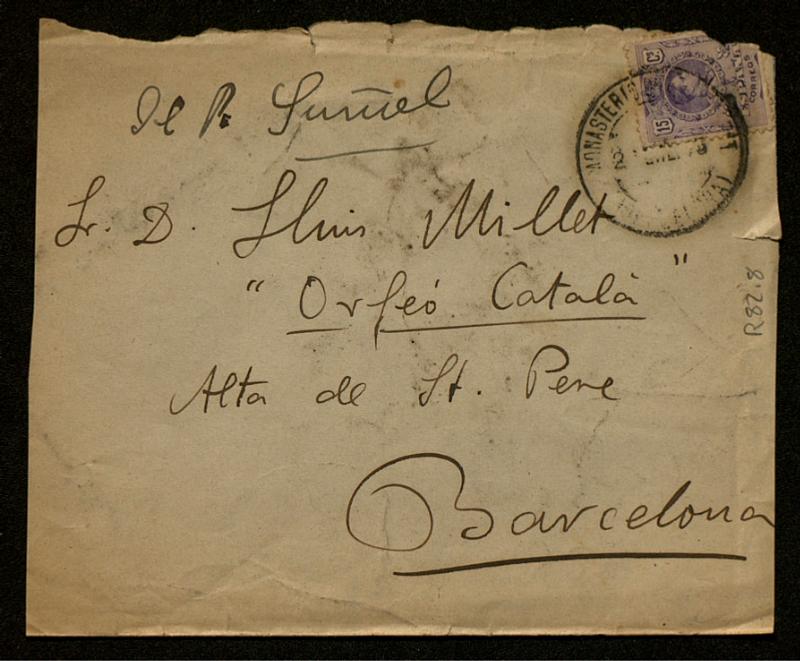 Del P. Suñol
Sr. D. Lluis Millet
"Orfeó Català"
Alta de St. Pere
Barcelona
R82.8
15
15
CORREOS
MONASTERIO